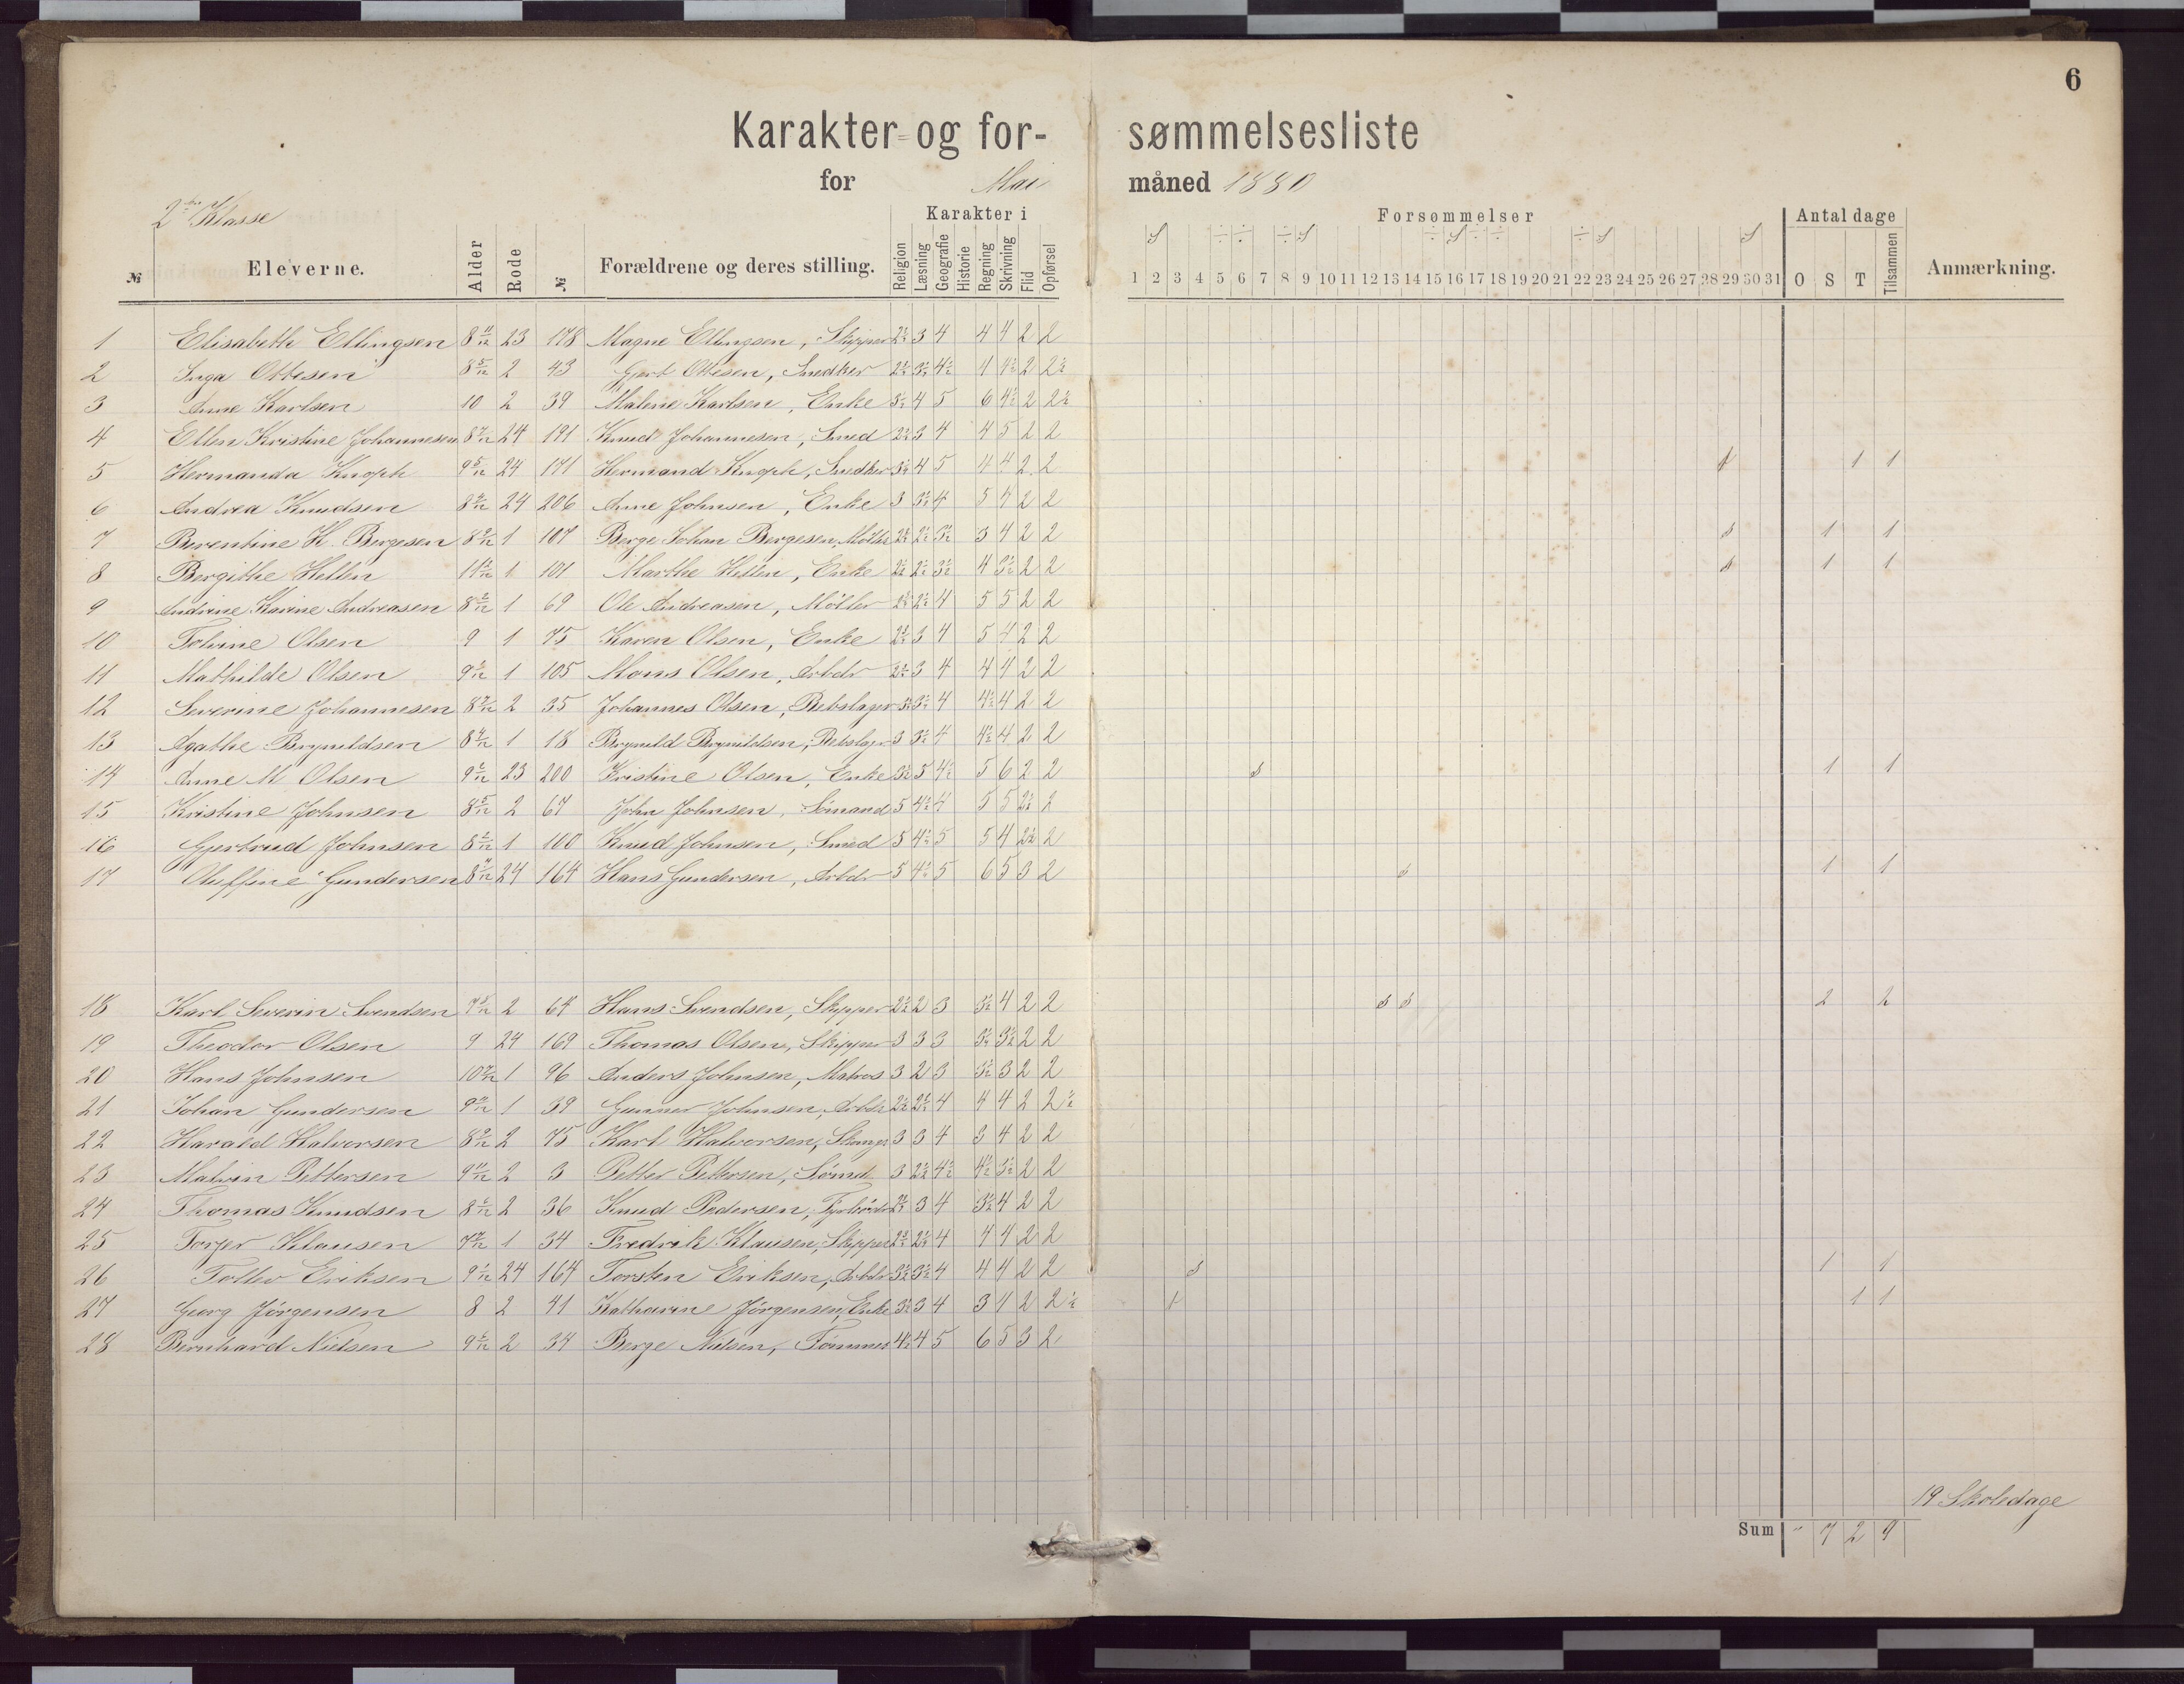 6
Karakter- og for- sømmelsesliste
for Mai måned 1880
2den Klasse
Karakter i Forsømmelser Antal dage
S ÷ ÷ ÷ S ÷ S ÷ ÷ ÷ S S
№ Eleverne. Alder Rode № Forældrene og deres stilling. Religion Læsning Geografie Historie Regning Skrivning Flid Opførsel 1 2 3 4 5 6 7 8 9 10 11 12 13 14 15 16 17 18 19 20 21 22 23 24 25 26 27 28 29 30 31 O S T Tilsammen Anmærkning.
1 Elisabeth Ellingsen 8 11/12 23 178 Magne Ellingsen, Skipper 2½ 3 4 4 4 2 2
2 Inga Ottesen 8 5/12 2 43 Gert Ottesen, Snedker 2½ 3½ 4½ 4 4½ 2 2½
3 Anne Karlsen 10 2 39 Malene Karlsen, Enke 3½ 4 5 6 4½ 2 2½
4 Ellen Kristine Johannesen 8 7/12 24 191 Knud Johannesen, Smed 2½ 3 4 4 5 2 2
5 Hermanda Knoph 9 5/12 24 171 Hermand Knoph, Snedker 3½ 4 5 4 4 2 2 1 1
6 Andrea Knudsen 24 206 Anne Johnsen, Enke 3 3½ 4 5 4 2 2
7 Berentine H. Bergesen 1 107 Berge Johan Bergesen, Møller 2½ 2½ 3½ 3 4 2 2 s 1 1
8 Bergithe Hellen 1 101 Marthe Hellen, Enke 2½ 2½ 3½ 4 3½ 2 2 s 1 1
9 Andrine Karine Andreasen 8 2/12 1 69 Ole Andreasen, Møller 2½ 2½ 4 5 5 2 2
10 Tolvine Olsen 9 1 75 Karen Olsen, Enke 2½ 3 4 5 4 2 2
11 Mathilde Olsen 1 105 Mons Olsen, Arbdr 2½ 3 4 4 4 2 2
12 Severine Johannesen 8 7/12 2 35 Johannes Olsen, Rebslager 3½ 3½ 4 4½ 4 2 2
13 Agathe Brynildsen 1 18 Brynild Brynildsen, Rebslager 3 3½ 4 4½ 4 2 2
14 Anne M Olsen 23 200 Kristine Olsen, Enke 3½ 5 4½ 5 6 2 2 s 1 1
15 Kristine Johnsen 8 5/12 2 67 John Johnsen, Sømand 5 4½ 4 5 5 2½ 2
16 Gjertrud Johnsen 1 100 Knud Johnsen, Smed 5 4½ 5 5 4 2½ 2
17 Oluffine Gundersen 8 11/12 24 164 Hans Gundersen, Arbdr 5 4½ 5 6 5 3 2 s 1 1
18 Karl Severin Svendsen 2 64 Hans Svendsen, Skipper 2½ 2 3 3½ 4 2 2 s s 2 2
19 Theodor Olsen 9 24 169 Thomas Olsen, Skipper 3 3 3 3½ 3½ 2 2
20 Hans Johnsen 1 96 Anders Johnsen, Matros 3 2 3 3½ 3 2 2
21 Johan Gundersen 1 39 Gunner Johnsen, Arbdr 2½ 2½ 4 4 4 2 2½
22 Harald Halvorsen 8 9/12 2 75 Karl Halvorsen, 3 3 4 3 4 2 2
23 Malvin Pettersen 9 11/12 2 3 Petter Pettersen, Sømd 3 2½ 4½ 4½ 3½ 2 2
24 Thomas Knudsen 2 36 Knud Pedersen, 2½ 3 4 3½ 4 2 2
25 Torjer Klausen 1 34 Fredrik Klausen, Skipper 2½ 2½ 4 4 4 2 2
26 Tollev Eriksen 24 164 Torsten Eriksen, Arbdr 3½ 3½ 4 4 4 2 2 s 1 1
27 Georg Jörgensen 8 2 41 Katharine Jörgensen, Enke 3½ 3 4 3 4 2 2½ t 1 1
28 Bernhard Nielsen 2 34 Berge Nielsen, Tømmer 4½ 4 5 6 5 3 2
19 Skoledage
Sum - 7 2 9